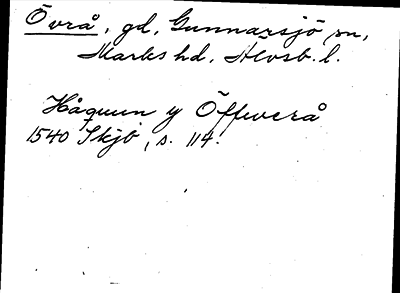 Övrå, gd, Gunnarsjö sn,
Marks hd, Älvsb. l.
Håquun y Öffuerå
1540 Skjb, s. 114.